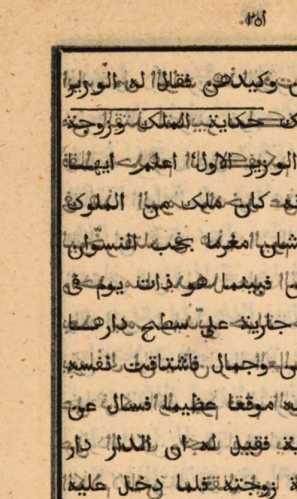 ٢٥١
وكيدهن فقال له الوزير
حكاية الملك وزوجة
الوزير الاول اعلم ايها
كان ملك من الملوك
مغرما بحب النسوان
فبينما هو ذات يوم في
جارية على سطح دارها
وجمال فاشتاقت نفسه
موقعا عظيما فسال عن
فقيل له ان الدار دار
زوجته فلما دخل عليه